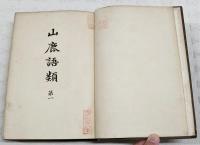 山鹿語類
第一